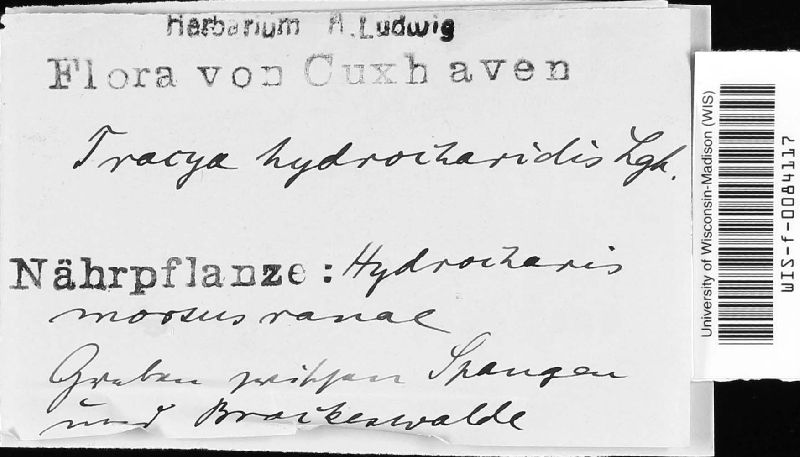 Herbarium A. Ludwig
Flora von Cuxhaven
Tracya hydrocharidis Lgh.
Nährpflanze: Hydrocharis
morsus ranae
Graben zwischen Spangen
und Brockeswalde
University of Wisconsin-Madison (WIS)
WIS-f-0084117